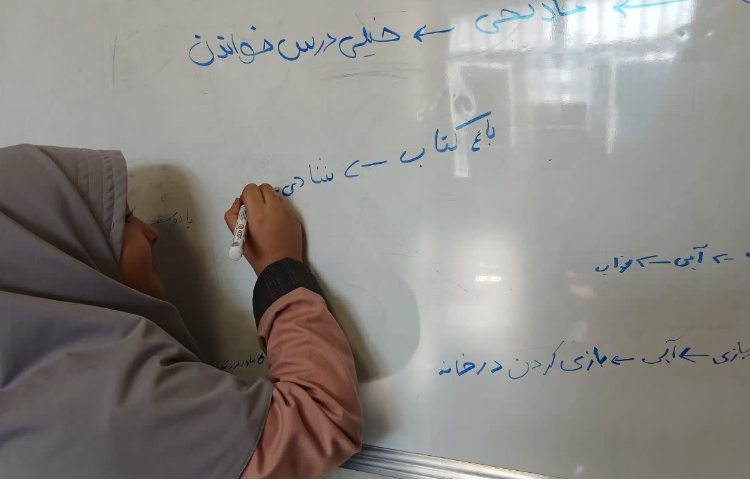 ← نارنجی ← خیلی درس خواندن
باغ کتاب ← شادی
← آبی ← خواب
بازی ← آبی ← بازی کردن در خانه